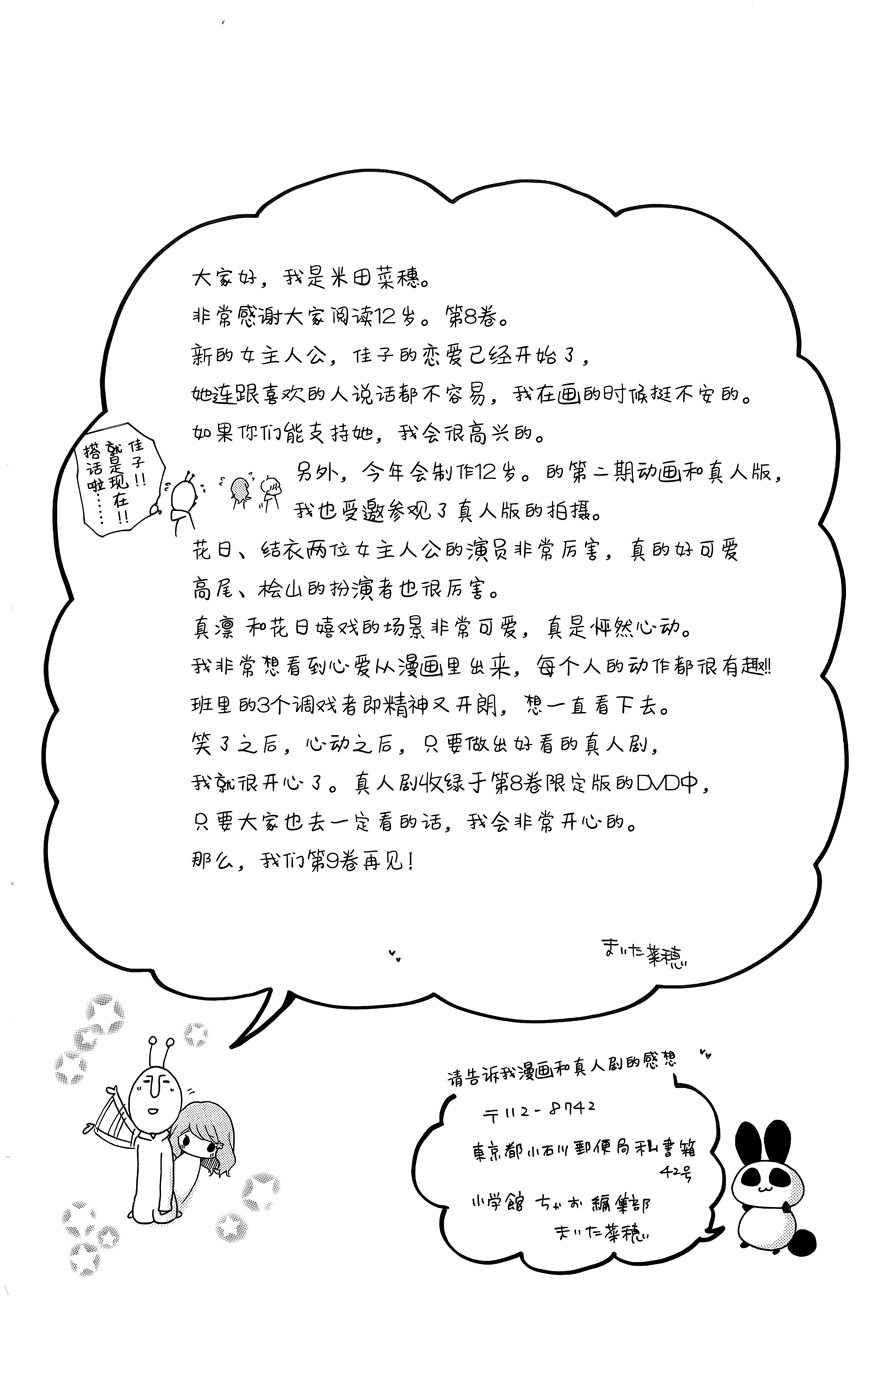 大家好，我是米田菜穗。
非常感谢大家阅读12岁。第8卷。
新的女主人公，佳子的恋爱已经开始了，
她连跟喜欢的人说话都不容易，我在画的时候挺不安的。
如果你们能支持她，我会很高兴的。
佳子!!
就是现在!!
搭话啦……
另外，今年会制作12岁。的第二期动画和真人版，
我也受邀参观了真人版的拍摄。
花日、结衣两位女主人公的演员非常厉害，真的好可爱
高尾、桧山的扮演者也很厉害。
真凛 和花日嬉戏的场景非常可爱，真是怦然心动。
我非常想看到心爱从漫画里出来，每个人的动作都很有趣!!
班里的3个调戏者即精神又开朗，想一直看下去。
笑了之后，心动之后，只要做出好看的真人剧，
我就很开心了。真人剧收绿于第8卷限定版的DVD中，
只要大家也去一定看的话，我会非常开心的。
那么，我们第9卷再见！
まいた菜穂
请告诉我漫画和真人剧的感想
〒112-8742
東京都小石川郵便局私書箱
42号
小学館 ちゃお編集部
まいた菜穂